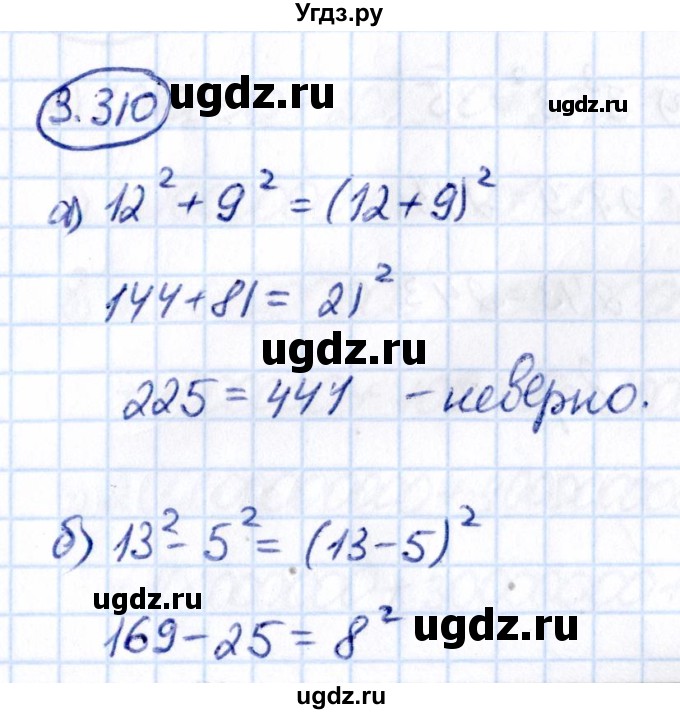 Угдз.ру
3.310 ugdz.ru ugdz.ru
а) 12² + 9² = (12 + 9)²
144 + 81 = 21²
ugdz.ru
225 = 441 - неверно.
б) 13² - 5² = (13 - 5)²
ugdz.ru
169 - 25 = 8² ugdz.ru
ugdz.ru